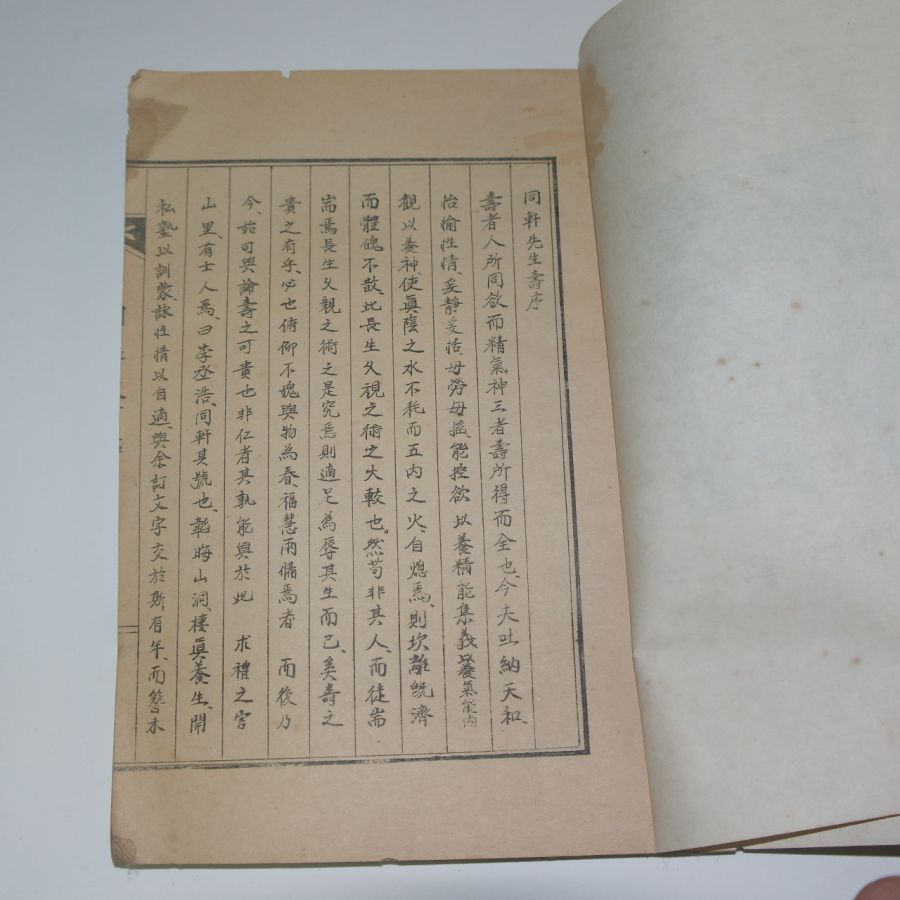 同軒先生壽序
壽者人所同欲而精氣神三者壽所得而全也今夫吐納天和
怡愉性情爰靜爰恬毋勞毋搖能控欲以養精能集義以養氣能內
觀以養神使眞陰之水不耗而五內之火自熄焉則坎離旣濟
而體魄不散此長生久視之術之大較也。然苟非其人而徒耑
耑焉長生久視之術之是究焉則適足為辱其生而已奚壽之
貴之有乎必也俯仰不愧與物為春福慧兩備焉者 而後乃
今始可與論壽之可貴也非仁者其孰能與於此 求禮之宮
山里有士人焉曰李丞浩同軒其號也韜晦山洞棲眞養生開
私塾以訓蒙詠性情以自適與余訂文字交於斯有年而簪木